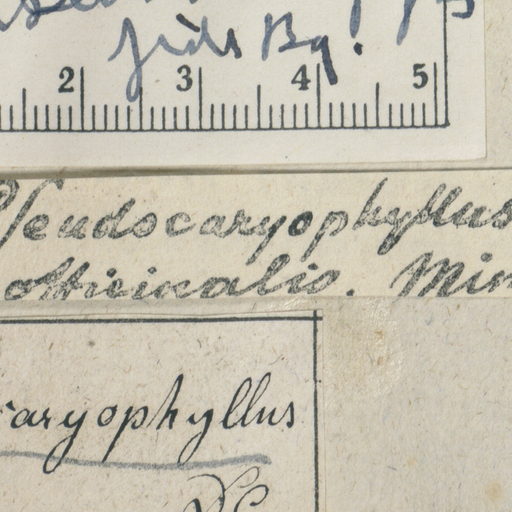 fide Bg.
2 3 4 5
Pseudocaryophyllus
officinalis. Min
caryophyllus
DC